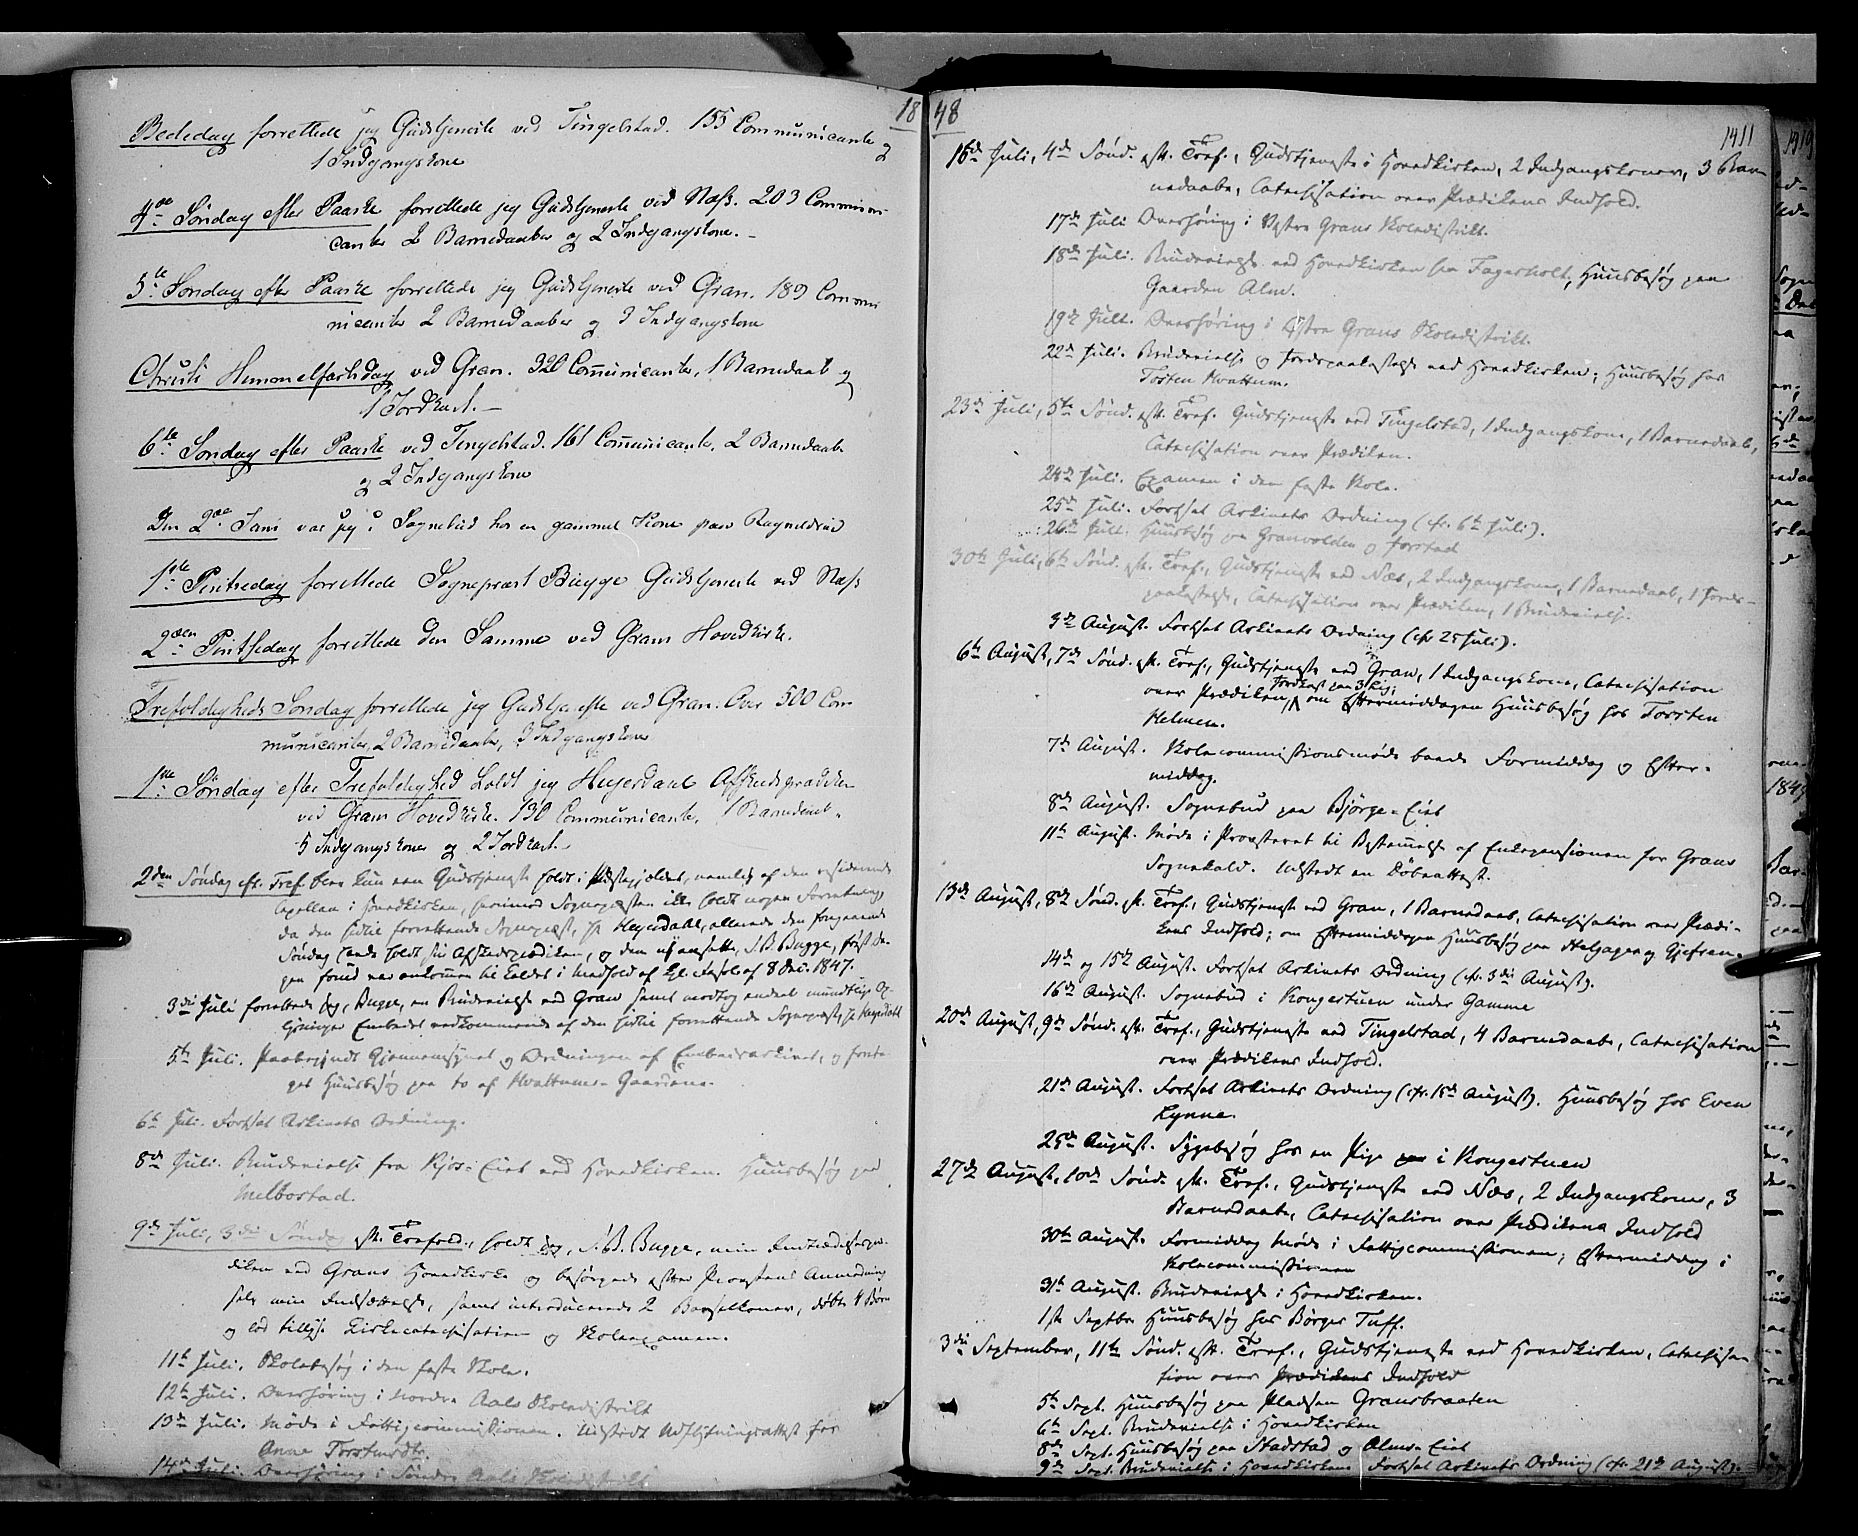 18
Bededag forrettede jeg Gudstjeneste ved Tingelstad. 155 Communicante og
1 Indgangskone
4de Søndag efter Paaske forrettede jeg Gudstjeneste ved Næss. 203 Communi-
canter 2 Barnedaaber og 2 Indgangskone. -
5te Søndag efter Paaske forrettede jeg Gudstjeneste ved Gran. 189 Commu
nicanter 2 Barnedaaber og 3 Indgangskone
Christi Himmelfartsdag ved Gran. 320 Communicanter, 1 Barnedaab og
1 Jordkast. -
6te Søndag efter Paaske ved Tingelstad. 161 Communicante, 2 Barnedaab
og 2 Indgangskone
Den 2den Juni var jeg i Sognebud hos en gammel Kone paa
1ste Pintsedag forrettede Sognepræst Bugge Gudstjeneste ved Næss
2den Pintsedag forrettede den Samme ved Grans Hovedkirke.
Trefoldigheds Søndag forrettede jeg Gudstjeneste ved Gran. Over 500 Com
municanter, 2 Barnedaaber, 3 Indgangskone
1ste Søndag efter Trefoldighed holdt jeg Heyerdahl Afskedsprædiken
ved Grans Hovedkirke. 130 Communicante, 1 Barnedaab,
5 Indgangskoner og 2 Jordkast. -
2den Søndag eft. Tref. blev kun een Gudstjeneste holdt i Præstegjældet, nemlig af den residerende
Capellan i Hovedkirken, hvorimod Sognepræsten ikke holdt nogen Forretning,
da den hidtil forrettende Sognepræst, Hr Heyerdahl, allerede den foregaaende
Søndag havde holdt sin Afskedsprædiken, og den nyansatte, S. B. Bugge, først Da-
gen forud var ankommen til Kaldet i Medhold af Kgl. Resol. af 8 Dec. 1847.
3die Juli forrettede jeg, Bugge, en Brudevielse ved Gran samt modtog endeel mundtlige Op-
lysninger Embedet vedkommende af den hidtil forrettende Sognepræst, Hr Heyerdahl
5te Juli. Paabegyndt Gjennemsynet og Ordningen af Embedsarkivet, og foreta-
get Huusbesøg paa to af Hvattums-Gaardene.
6te Juli. Fortsat Arkivets Ordning.
8de Juli. Brudevielse fra Kjos-Eiet ved Hovedkirken. Huusbesøg paa
Melbostad.
9de Juli, 3die Søndag eft. Trefold., holdt jeg, S. B. Bugge, min Indtrædelsespræ-
diken ved Grans Hovedkirke og besørgede efter Provstens Anmodning
selv min Indsættelse, samt introducerede 2 Barselkoner, døbte 4 Børn
og lod tillyse Kirkecatechisation og Skoleexamen.
11te Juli. Skolebesøg i den faste Skole.
12te Juli. Overhøring i Nordre Aals Skoledistrikt
13de Juli. Møde i Fattigcommissionen. Udstedt Udflytningsattest for
Anne Torstensdtr.
14de Juli. Overhøring i Søndre Aals Skoledistrikt.
48
1411
16de Juli, 4de Sønd. eft. Tref., Gudstjeneste i Hovedkirken, 2 Indgangskoner, 3 Bar-
nedaabe, Catechisation over Prædikens Indhold.
17de Juli Overhøring i Vestre Grans Skoledistrikt.
18de Juli. Brudevielse ved Hovedkirken fra Fagerholt, Huusbesøg paa
Gaarden Alm.
19de Juli. Overhøring i Østre Grans Skoledistrikt.
22de Juli. Brudevielse og Jordspaakastelse ved Hovedkirken; Huusbesøg hos
Torsten Hvattum.
23de Juli, 5te Sønd. eft. Tref. Gudstjeneste ved Tingelstad, 1 Indgangskone, 1 Barnedaab,
Catechisation over Prædiken.
24de Juli. Examen i den faste Skole.
25de Juli. Fortsat Arkivets Ordning (cfr. 6te Juli).
26de Juli. Huusbesøg paa Granvolden og Jorstad
30te Juli, 6te Sønd. eft. Tref., Gudstjeneste ved Næs, 2 Indgangskoner, 1 Barnedaab, 1 Jords-
paakastelse, Catechisation over Prædiken, 1 Brudevielse.
3die August. Fortsat Arkivets Ordning (cfr 25 Juli).
6te August, 7de Sønd. eft. Tref., Gudstjeneste ved Gran, 1 Indgangskone, Catechisation
Jordkast paa 3 Lig;
over Prædiken, om Eftermiddagen Huusbesøg hos Torsten
Helmen.
7de August. Skolecommissionsmøde baade Formiddag og Efter-
middag.
8de August. Sognebud paa Bjørge-Eiet
11te August. Møde i Provsteret til Bestemmelse af Enkepensionen for Grans
Sognekald. Udstedt en Døbeattest.
13de August, 8de Sønd. eft. Tref., Gudstjeneste ved Gran, 1 Barnedaab, Catechisation over Prædi-
kens Indhold; om Eftermiddagen Huusbesøg paa Helgager og Gjefsen.
14de og 15de August. Fortsat Arkivets Ordning (cfr. 3die August).
16de August. Sognebud i Kongestuen under Gamme
20de August, 9de Sønd. eft. Tref., Gudstjeneste ved Tingelstad, 4 Barnedaabe, Catechisation
over Prædikens Indhold.
21de August. Fortsat Arkivets Ordning (cfr. 15de August). Huusbesøg hos Even
Lynne.
25de August. Sygebesøg hos en Pige i Kongestuen
27de August, 10de Sønd. eft. Tref., Gudstjeneste ved Næs, 2 Indgangskone, 3
Barnedaabe, Catechisation over Prædikens Indhold
30te August. Formiddag Møde i Fattigcommissionen; Eftermiddag i
Skolecommissionen
31te August. Brudevielse i Hovedkirken.
1ste Septbr Huusbesøg hos Børger Tuff.
3die September, 11te Sønd. eft. Tref., Gudstjeneste ved Hovedkirken, Catechisa-
tion over Prædikens Indhold
5te Sept. Huusbesøg paa Pladsen Gransbraaten
6te Sept. Brudevielse i Hovedkirken
8de Sept. Huusbesøg paa Stadstad og Alms-Eiet
9de Sept. Brudevielse i Hovedkirken. Fortsat Arkivets Ordning (cfr. 21de August).